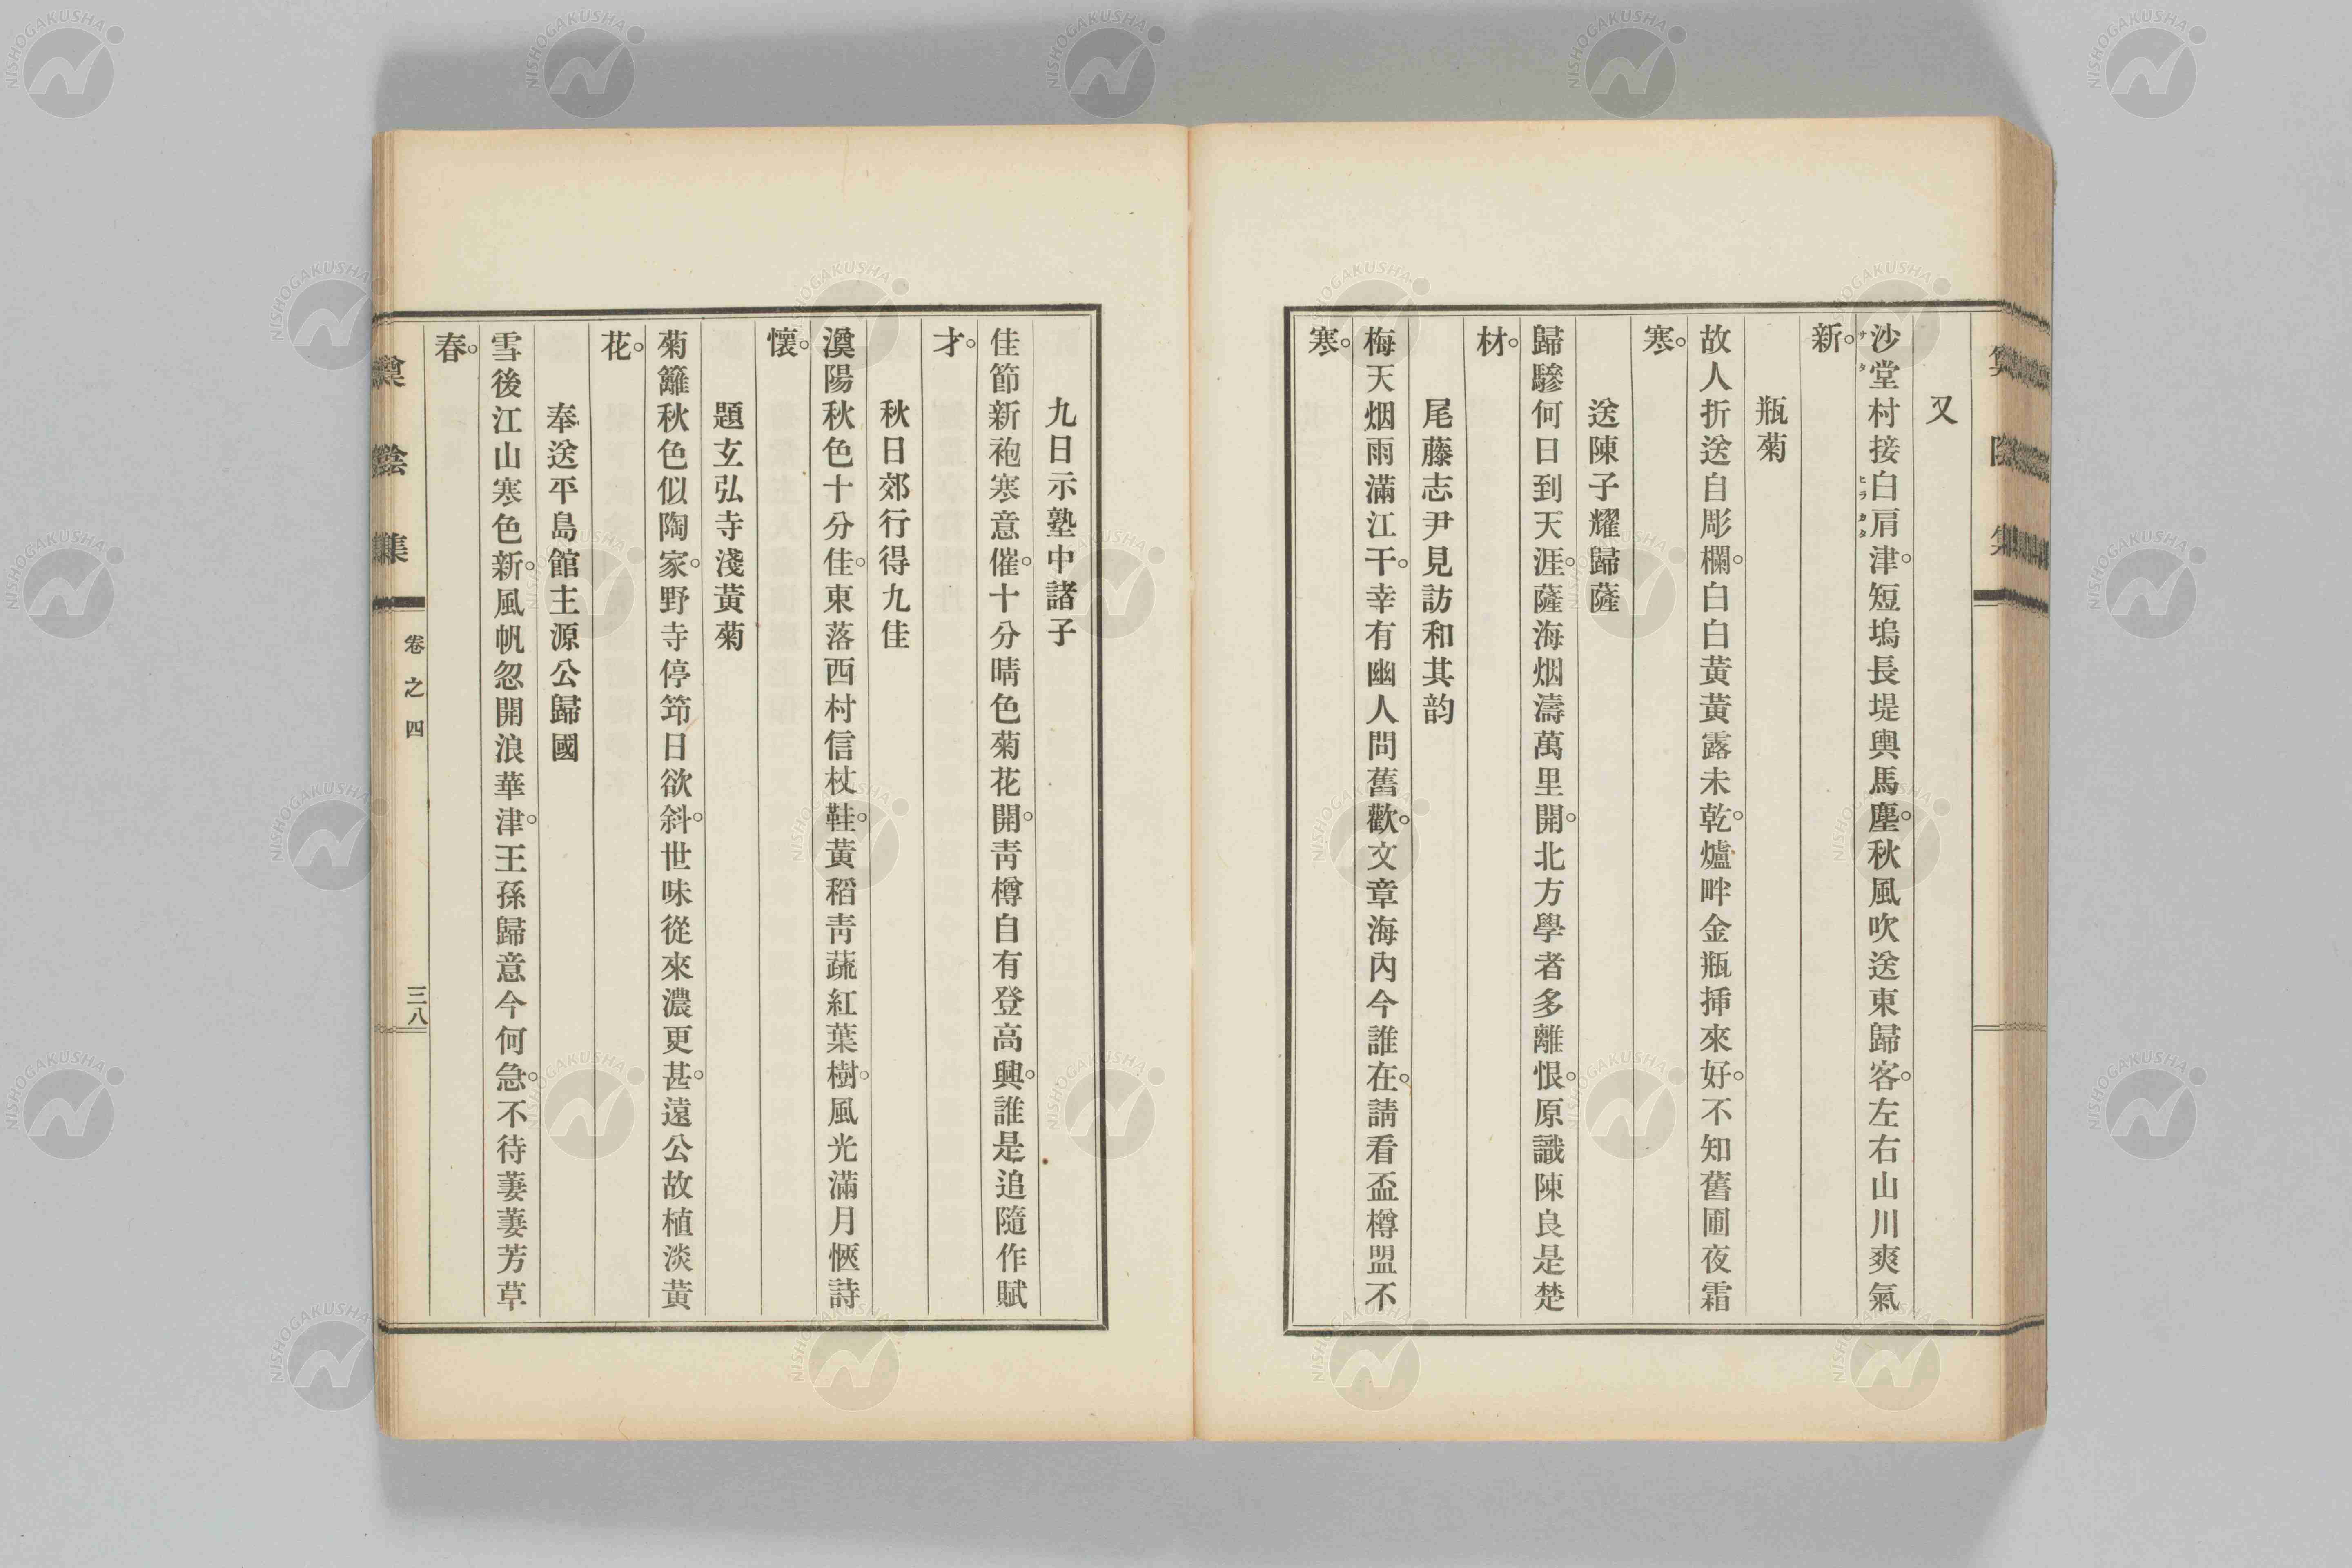 又
沙堂村接白肩津。短塢長堤輿馬塵。秋風吹送東歸客。左右山川爽氣
サタ ヒラカタ
新。
瓶菊
故人折送自彫欄。白白黃黃露未乾。爐畔金瓶挿來好。不知舊圃夜霜
寒。
送陳子耀歸薩
歸驂何日到天涯。薩海烟濤萬里開。北方學者多離恨。原識陳良是楚
材。
尾藤志尹見訪和其韵
梅天烟雨滿江干。幸有幽人問舊歡。文章海內今誰在。請看盃樽盟不
寒。
九日示塾中諸子
佳節新袍寒意催。十分晴色菊花開。靑樽自有登高興。誰是追隨作賦
才。
秋日郊行得九佳
澳陽秋色十分佳。東落西村信杖鞋。黃稻靑蔬紅葉樹。風光滿月愜詩
懷。
題玄弘寺淺黃菊
菊籬秋色似陶家。野寺停筇日欲斜。世味從來濃更甚。遠公故植淡黃
花。
奉送平島館主源公歸國
雪後江山寒色新。風帆忽開浪華津。王孫歸意今何急。不待萋萋芳草
春。
集
卷之四
三八
NISHOGAKUSHA